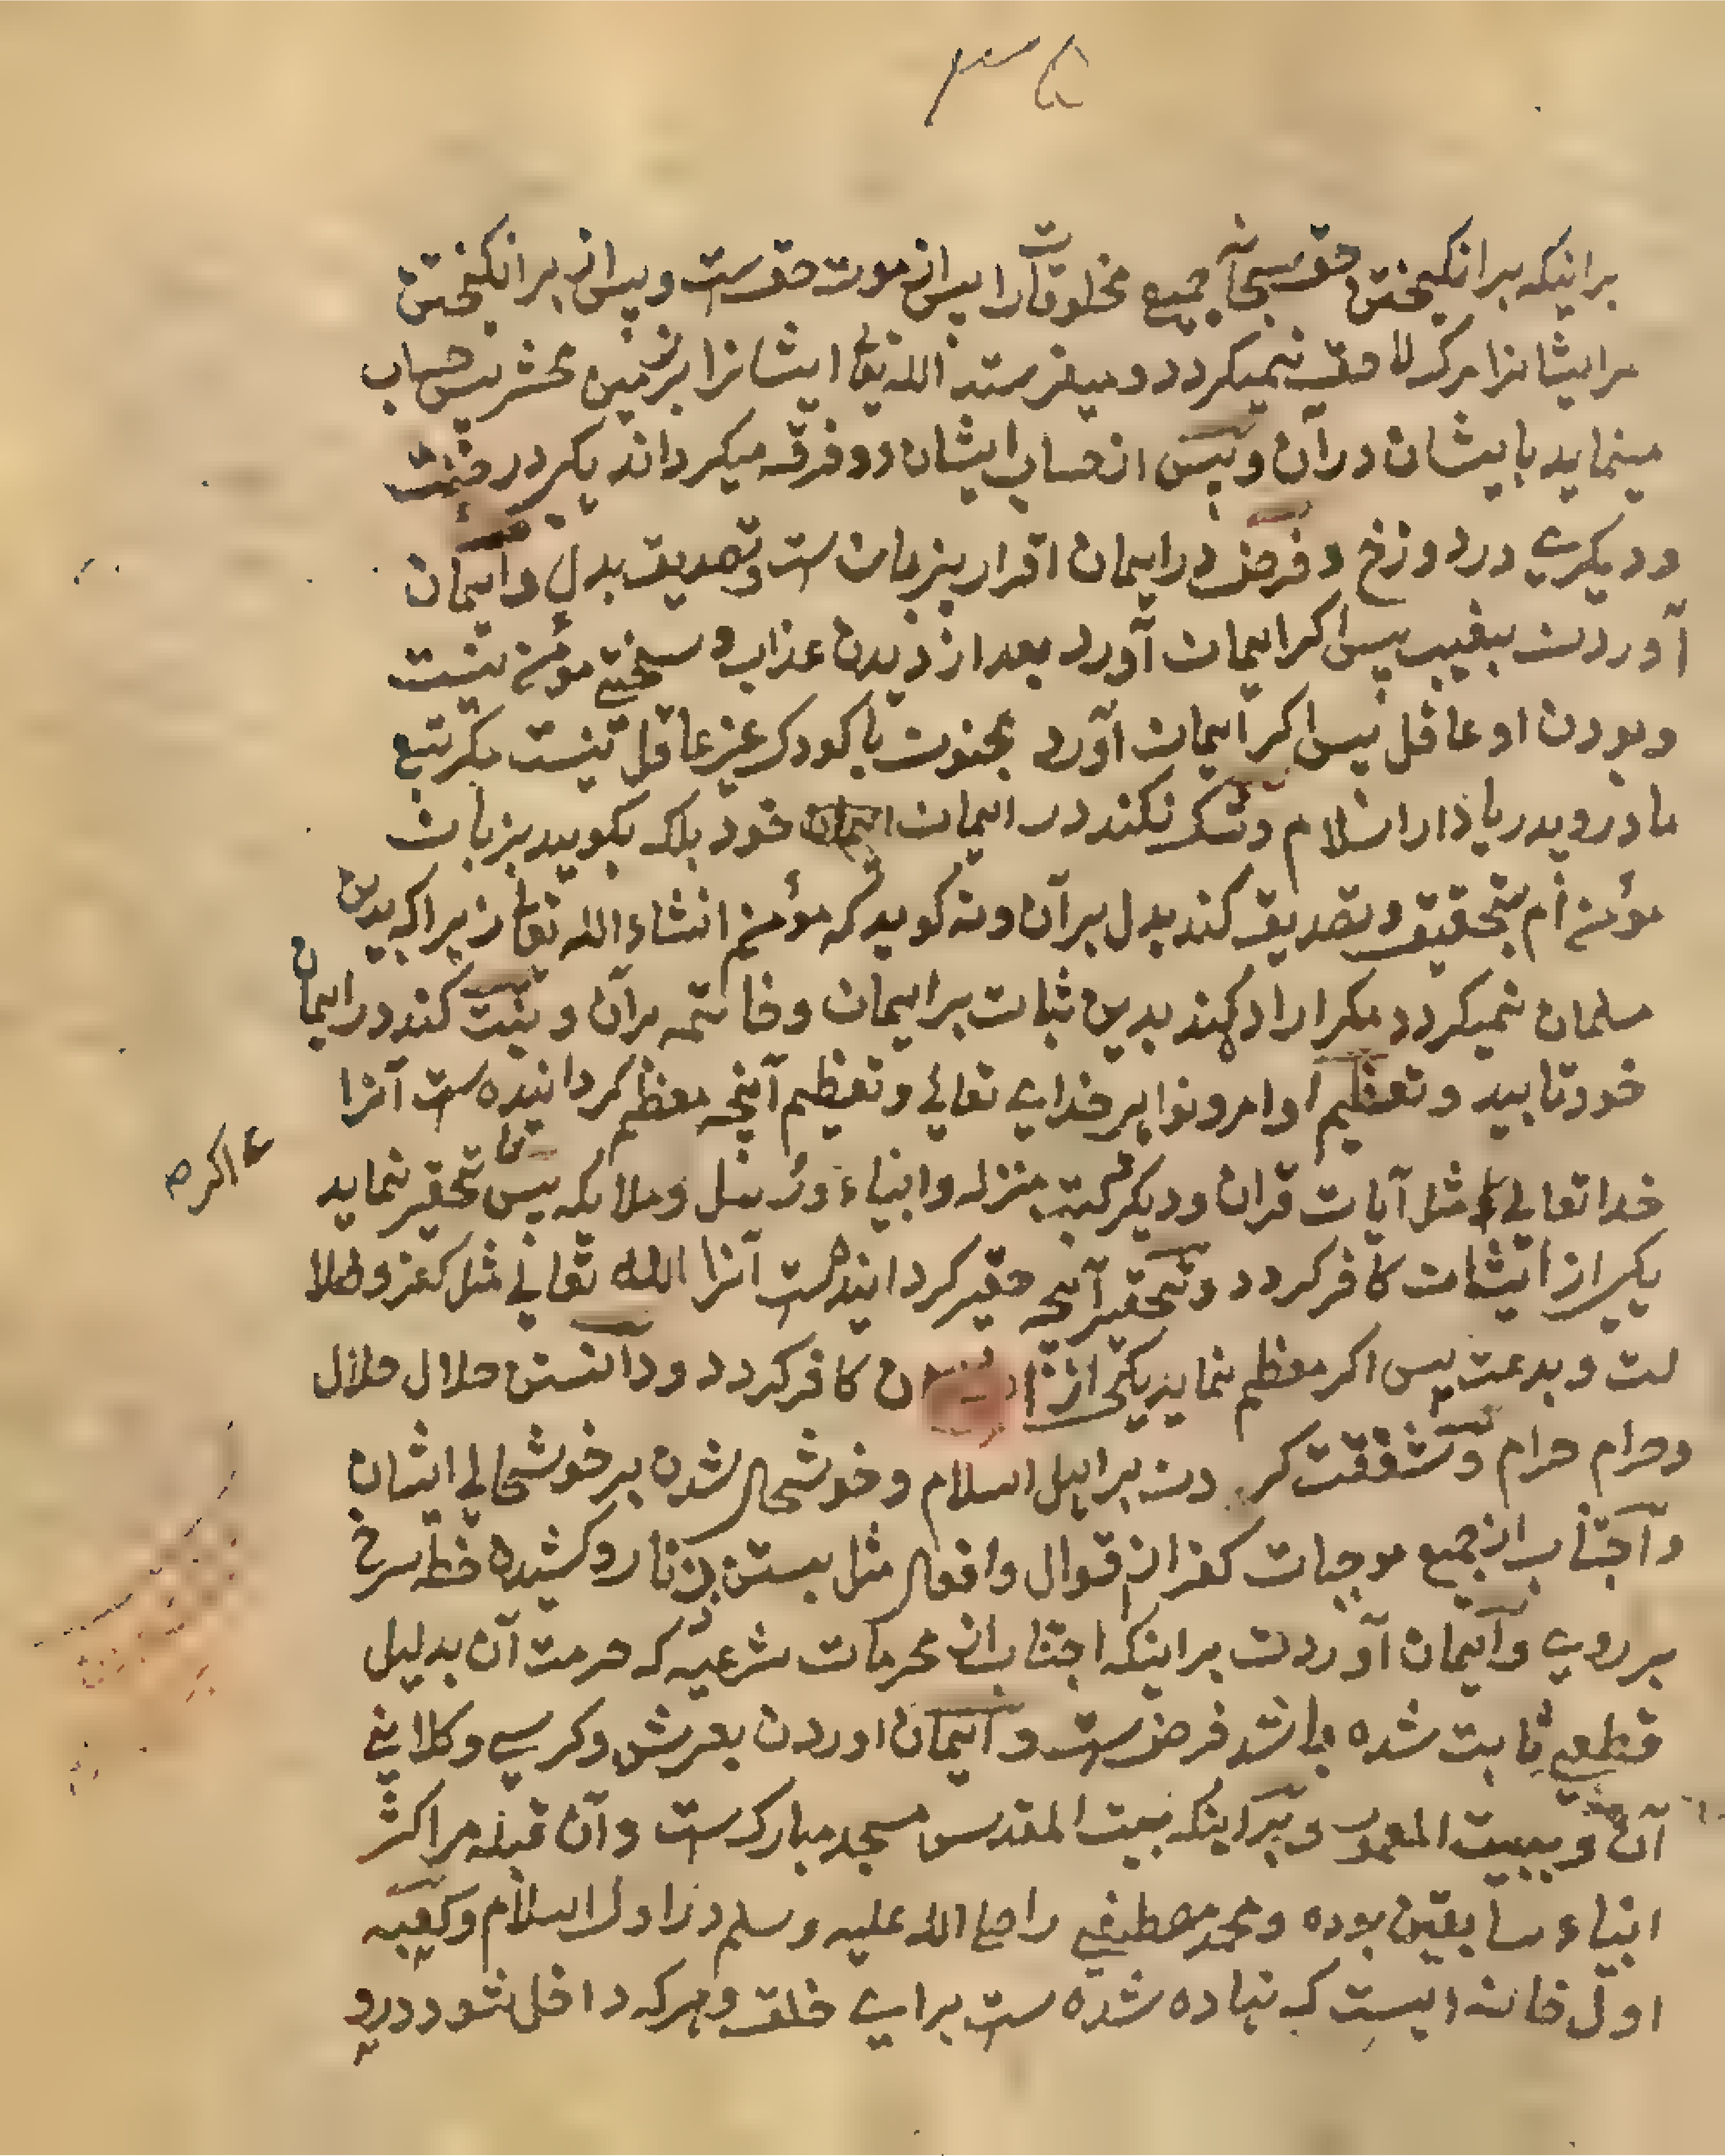 ۳۵
براینکه برانکیختن حق سبحانه جمیع مخلوقات را پس از موت حق ست و پس از برانکیختن
مرایشانرا مرک لاحق نمیکردد و میفرستد الله تعا ایشانرا بزمین محشر پس حساب
مینماید بایشان در آن و پس از حساب ایشان دو فرقه میکرداند یکی در جنت
و دیکری در دوزخ و فرض در ایمان اقرار بزبان ست و تصدیق بدل و ایمان
آوردن بغیب پس اکر ایمان آورد بعد از دیدن عذاب و سختی مؤمن نیست
و بودن او عاقل پس اکر ایمان آورد مجنون یا کودک غیر عاقل نیست مکر بتبع
مادر و پدر یا دار اسلام و شک نکند در ایمان خود بلکه بکوید بزبان
مؤمن ام بتحقیق و تصدیق کند بدل برآن و نه کوید که مؤمنم انشاء الله تعا زیراکه بدین
مسلمان نمیکردد مکر اراده کند بدین ثبات بر ایمان و خاتمه برآن و نیت کند در ایمان
خود تابید و تعظیم اوامر و نواهی خدای تعالی و تعظیم آنچه معظم کردانیده ست آنرا
خدا تعالی مثل آیات قران و دیکر کتب منزله و انبیاء و رسل و ملایکه پس تحقیر نماید
ع اکر صح
یکی از ایشان کافر کردد و تحقیر آنچه حقیر کردانیده ست آنرا الله تعالی مثل کفر و ضلا
لت و بدعت پس اکر معظم نماید یکی از ایشان کافر کردد و دانستن حلال حلال
و حرام حرام و شفقت کردن بر اهل اسلام و خوشحال شدن بر خوشحالی ایشان
و اجتناب از جمیع موجبات کفر از قوال و افعال مثل بستن زنار و کشیده خط سرخ
بر روی و ایمان آوردن براینکه اجتناب از محرمات شرعیه که حرمت آن بدلیل
قطعی ثابت شده باشد فرض ست و ایمان اوردن بعرش و کرسی و کلانی
آن و ببیت المعمور و براینکه بیت المقدس مسجد مبارک ست و آن قبله مر اکثر
انبیاء سابقین بوده و محمد مصطفی را صلی الله علیه و سلم در اول اسلام و کعبه
اول خانه ایست که نهاده شده ست برای خلق و هرکه داخل شود درو